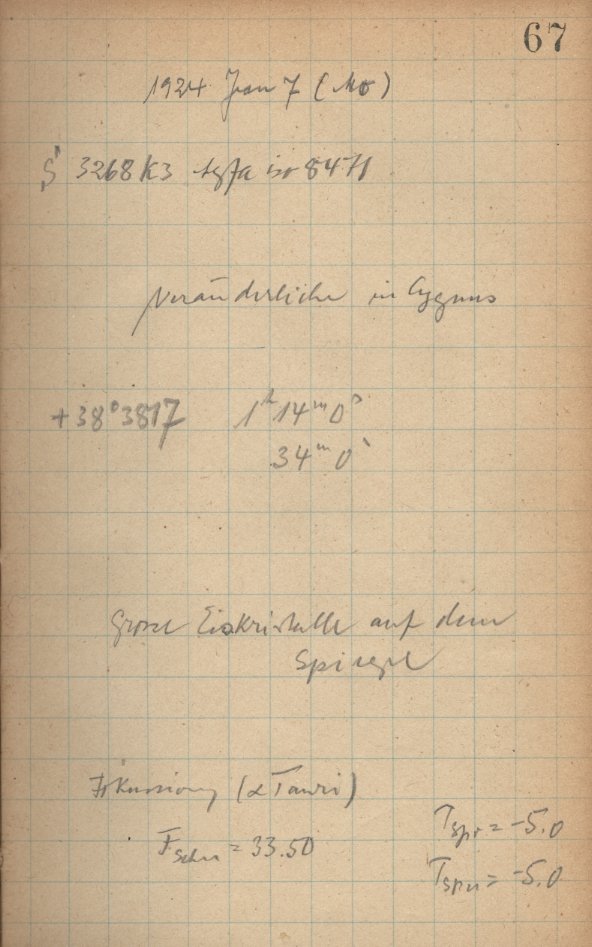 67
1924 Jan 7 (Mo)
S 3268 K3 Agfa iso 8471
Veränderliche in Cygnus
+38°3817 1h 14m 0s
34m 0s
Grosse Eiskristalle auf dem
Spiegel
Fokussierung (α Tauri)
= 33.50
T = -5.0
T = -5.0